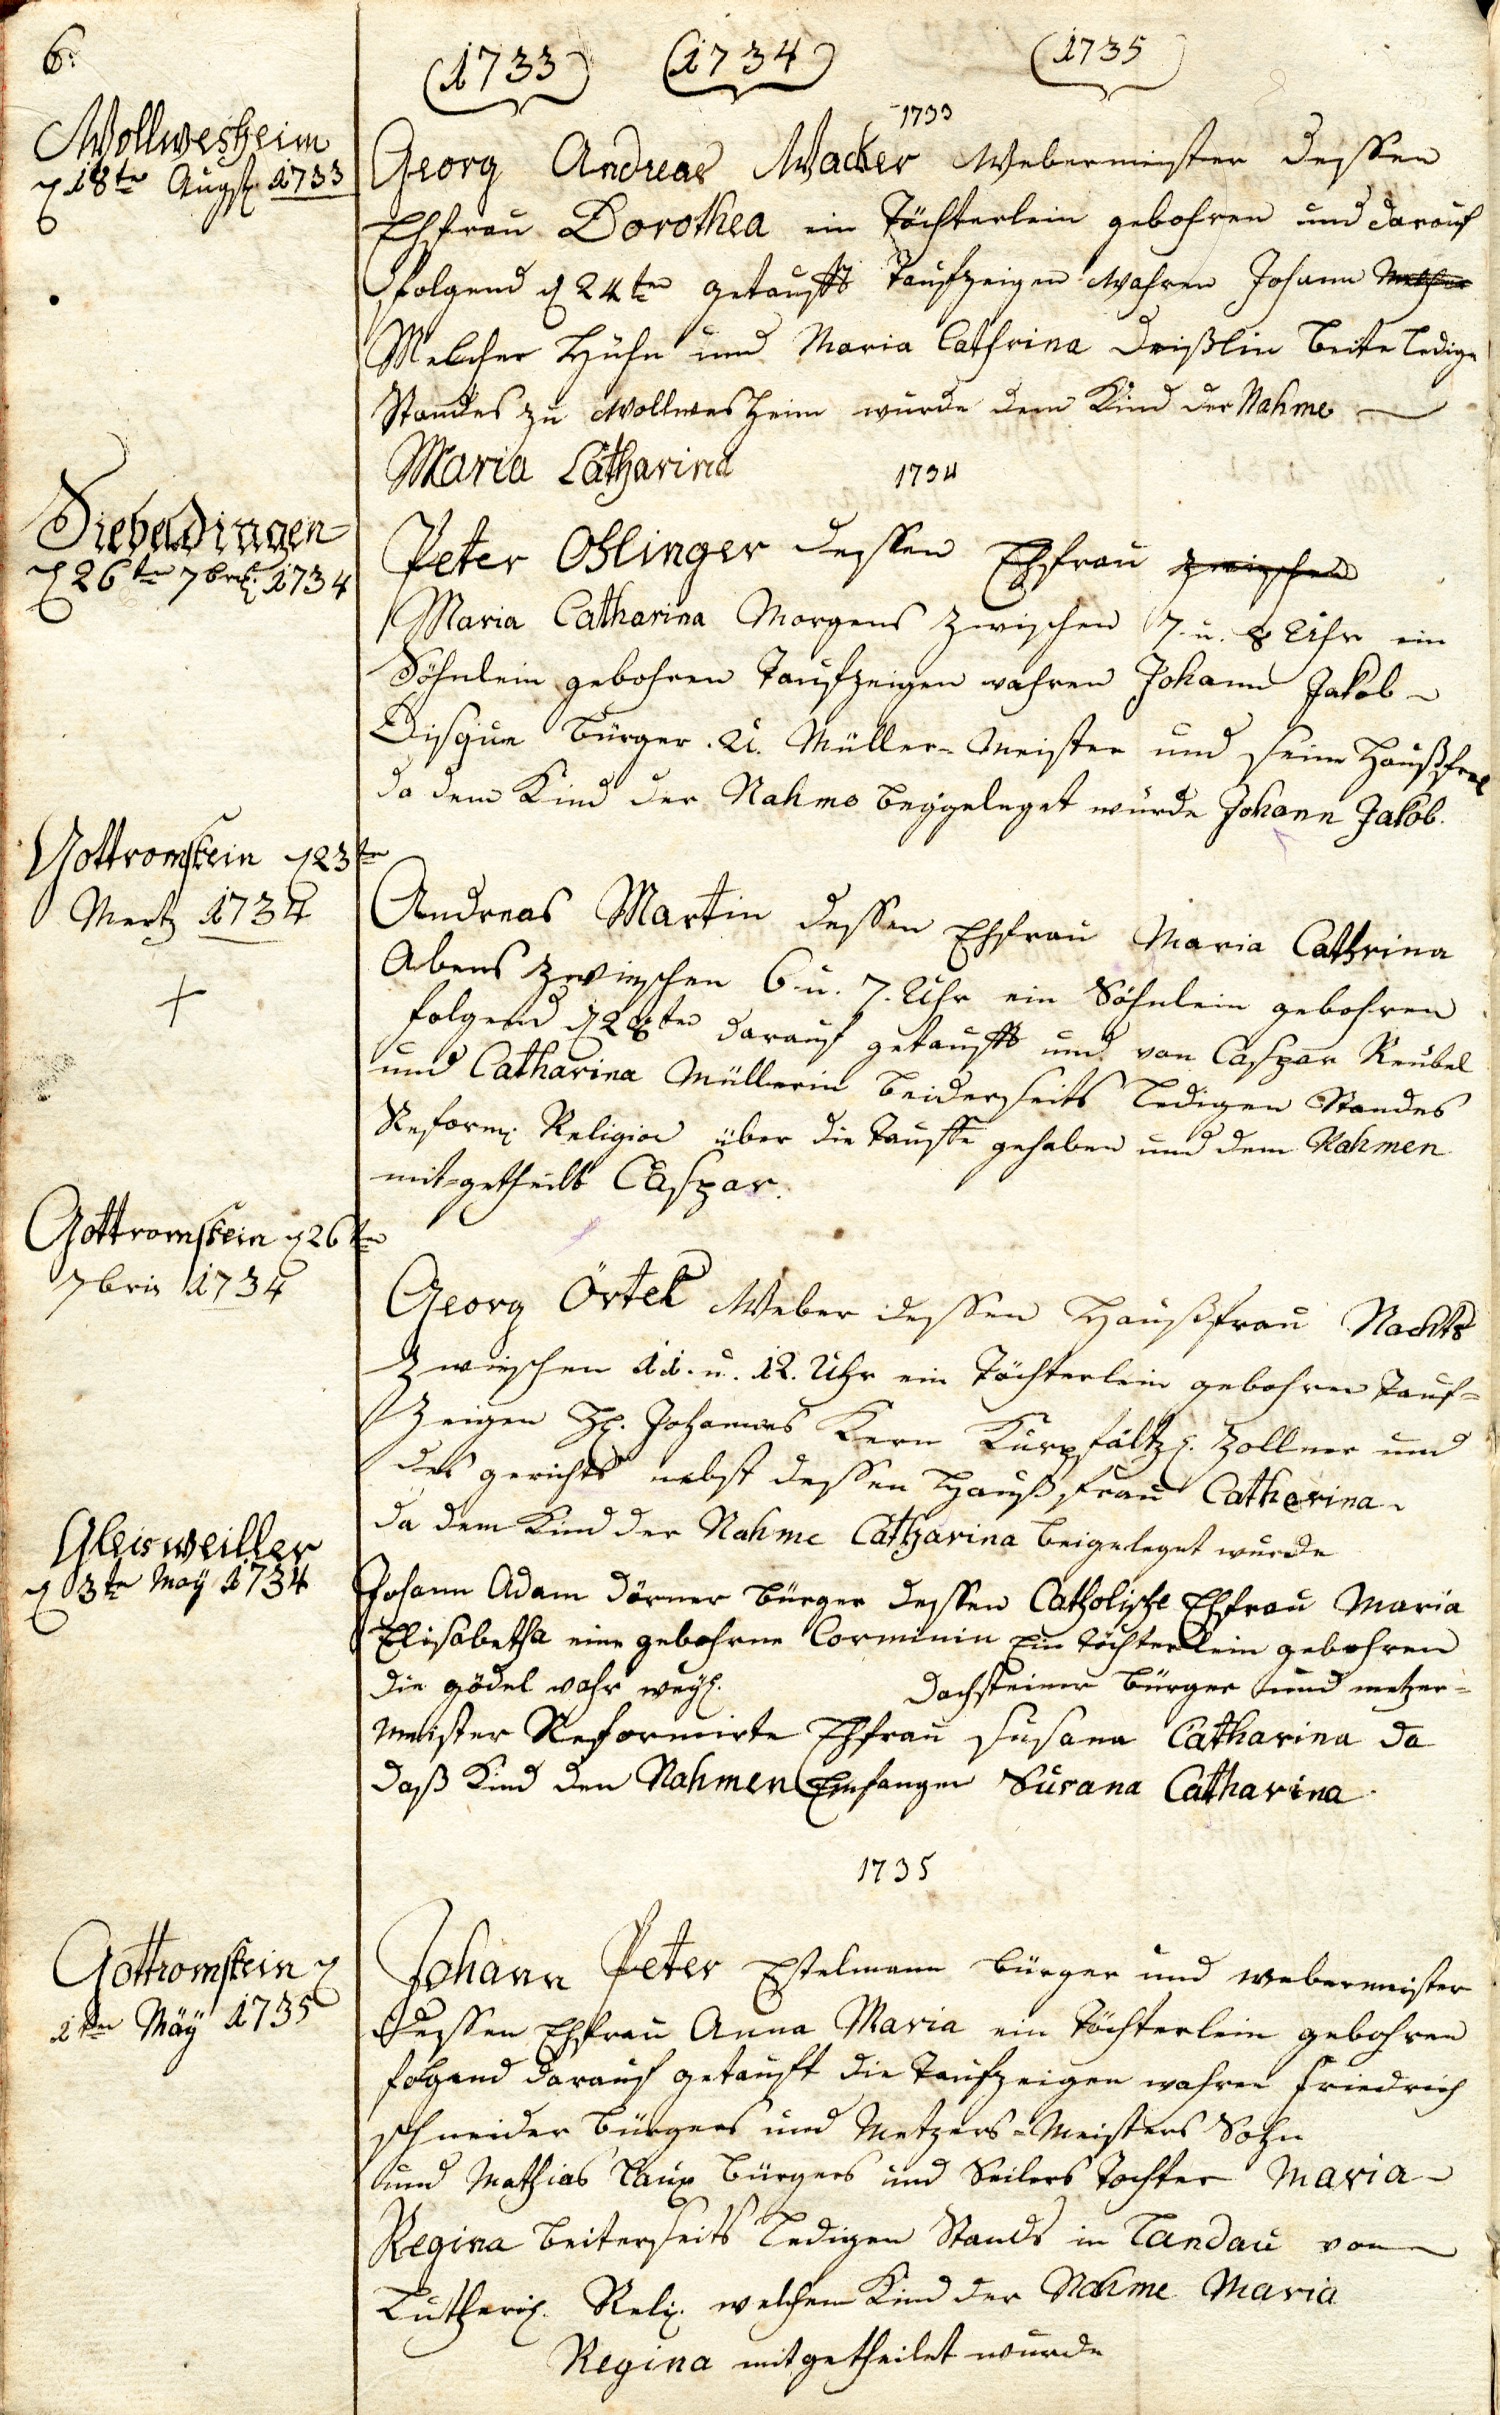 6.
1733 1734 1735
Wollmesheim
d 18ten Augst. 1733
1733
Georg Andreas Wacker Webermeister dessen
Ehfrau Dorothea ein Töchterlein gebohren und darauf
folgend d 24ten getaufft Taufzeigen wahren Johann
Melcher Hühn und Maria Cathrina Deißlin beite ledige
Standes zu Wollmesheim wurde dem Kind der Nahme
Maria Catharina
1734
Siebeldingen
d 26ten 7bris 1734
Peter Ohlinger dessen Ehfrau zwischen
Maria Catharina Morgens zwischen 7. u. 8 Uhr ein
Söhnlein gebohren Taufzeigen wahren Johann Jakob
Disque Bürger. u. Müller-Meister und seine Haußfrau
da dem Kind der Nahme beygeleget wurde Johann Jakob.
Gottromstein d 23ten
Mertz 1734
Andreas Martin dessen Ehfrau Maria Cathrina
Abens zwieschen 6 u. 7. Uhr ein Söhnlein gebohren
folgend d 28ten darauf getaufft und von Caspar Reubel
und Catharina Müllerin beiderseits ledigen Standes
Reform. Religion über die Tauffe gehaben und dem Nahmen
mit-getheilt Caspar.
Gottromstein d 26ten
7bris 1734
Georg Örtel Weber dessen Haußfrau Nachts
zwieschen 11. u. 12. Uhr ein Töchterlein gebohren Tauf-
zeigen H. Johannes Kern Kurpfältz. Zollner und
des gerichts nebst dessen Haußfrau Catharina
da dem Kind der Nahme Catharina beigeleget wurde
Gleisweiller
d 3ten May 1734
Johann Adam Dörner Bürger dessen Catholische Ehfrau Maria
Elisabetha eine gebohrne Corminin Ein Töchterlein gebohren
die gödel wahr weyl. Dachsteiner Bürger und metzer-
meister Reformirte Ehfrau Susana Catharina da
daß Kind den Nahmen Emfangen Susana Catharina.
1735
Gottromstein d
1ten Mäy 1735
Johann Peter Estelmann Bürger und webermeister
dessen Ehfrau Anna Maria ein Töchterlein gebohren
folgend darauf getauft die Taufzeigen wahren Friedrich
schneider Bürgers und Metzers-Meisters Sohn
und Mathias Taux Bürgers und Seilers Tochter Maria
Regina beiterseits ledigen Stands in Landau von
Lutheris. Reli. welchem Kind der Nahme Maria
Regina mitgetheilet wurde